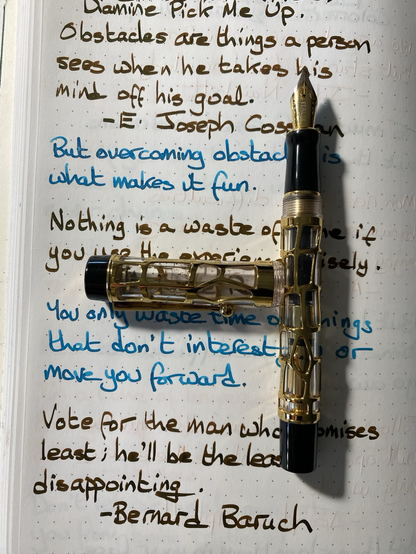 Diamine Pick Me Up.
Obstacles are things a person
sees when he takes his
mind off his goal.
-E. Joseph Cossman
But overcoming obstacles is
what makes it fun.
Nothing is a waste of time if
you use the experience wisely.
You only waste time on things
that don't interest you or
move you forward.
Vote for the man who promises
least; he'll be the least
disappointing.
-Bernard Baruch